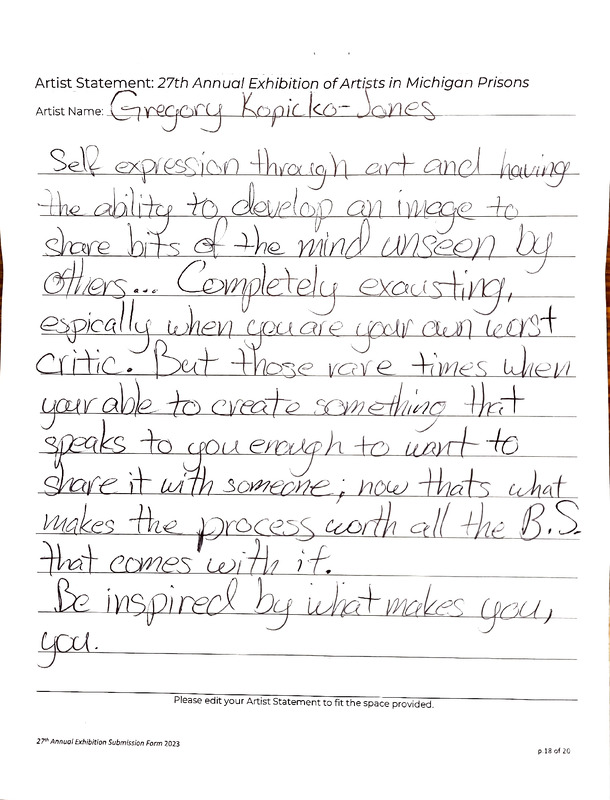 Artist Statement: 27th Annual Exhibition of Artists in Michigan Prisons
Artist Name: Gregory Kopicko-Jones
Self expression through art and having
the ability to develop an image to
share bits of the mind unseen by
others... Completely exausting,
espically when you are your own worst
critic. But those rare times when
your able to create something that
speaks to you enough to want to
share it with someone; now thats what
makes the process worth all the B.S.
that comes with it.
Be inspired by what makes you,
you.
Please edit your Artist Statement to fit the space provided.
27th Annual Exhibition Submission Form 2023
p.18 of 20